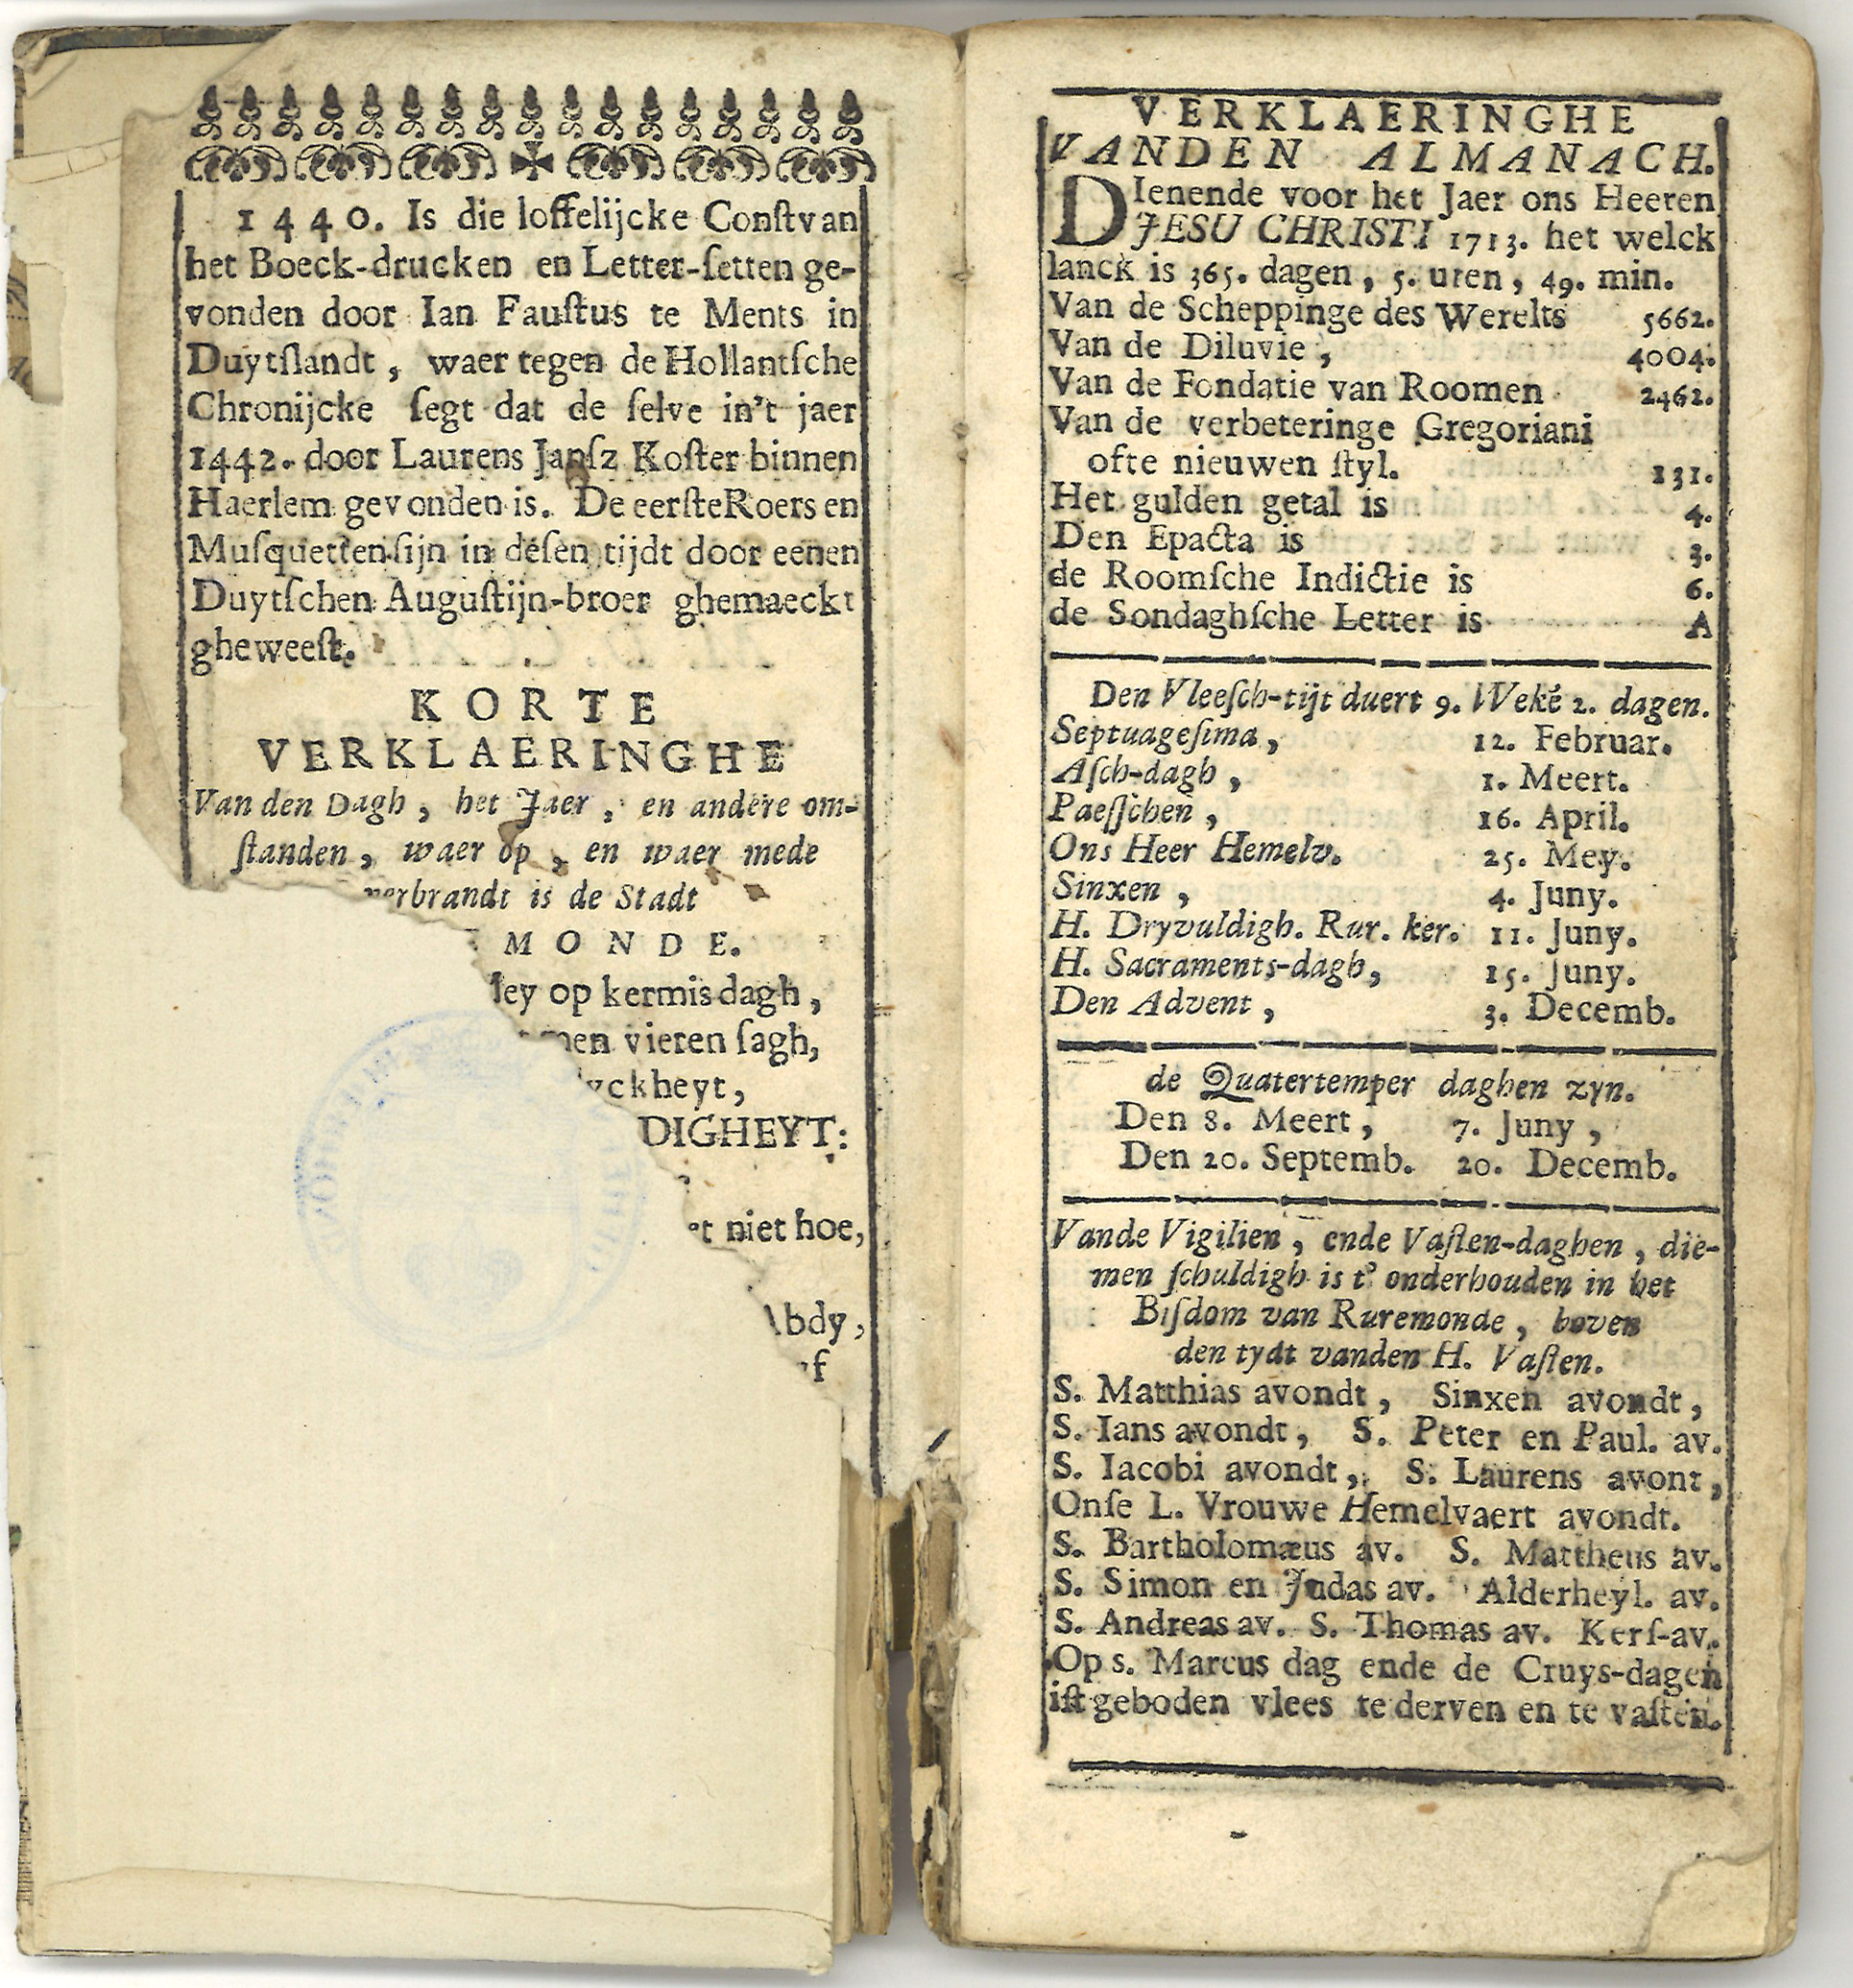 1440. Is die loffelijcke Conſt van
het Boeck-drucken en Letter-ſetten ge-
vonden door Ian Fauſtus te Ments in
Duytſlandt, waer tegen de Hollantſche
Chronijcke ſegt dat de ſelve in't jaer
1442. door Laurens Janſz Koſter binnen
Haerlem gevonden is. De eerſte Roers en
Muſquetten ſijn in deſen tijdt door eenen
Duytſchen Auguſtijn-broer ghemaeckt
gheweeſt.
KORTE
VERKLAERINGHE
Van den Dagh, het Jaer, en andere om-
ſtanden, waer op, en waer mede
verbrandt is de Stadt
MONDE.
op kermisdagh,
vieren ſagh,
ckheyt,
DIGHEYT:
niet hoe,
Abdy,
VERKLAERINGHE
VANDEN ALMANACH.
DIenende voor het Jaer ons Heeren
JESU CHRISTI 1713. het welck
lanck is 365. dagen, 5. uren, 49. min.
Van de Scheppinge des Werelts 5662.
Van de Diluvie, 4004.
Van de Fondatie van Roomen 2462.
Van de verbeteringe Gregoriani
ofte nieuwen ſtyl. 131.
Het gulden getal is 4.
Den Epacta is 3.
de Roomſche Indictie is 6.
de Sondaghſche Letter is A
Den Vleeſch-tijt duert 9. Wekē 2. dagen.
Septuageſima, 12. Februar.
Aſch-dagh, 1. Meert.
Paeſſchen, 16. April.
Ons Heer Hemelv. 25. Mey.
Sinxen, 4. Juny.
H. Dryvuldigh. Rur. ker. 11. Juny.
H. Sacraments-dagh, 15. Juny.
Den Advent, 3. Decemb.
de Quatertemper daghen zyn.
Den 8. Meert, 7. Juny,
Den 20. Septemb. 20. Decemb.
Vande Vigilien, ende Vaſten-daghen, die-
men ſchuldigh is t' onderhouden in het
Biſdom van Ruremonde, boven
den tydt vanden H. Vaſten.
S. Matthias avondt, Sinxen avondt,
S. Ians avondt, S. Peter en Paul. av.
S. Iacobi avondt, S. Laurens avont,
Onſe L. Vrouwe Hemelvaert avondt.
S. Bartholomæus av. S. Mattheus av.
S. Simon en Judas av. Alderheyl. av.
S. Andreas av. S. Thomas av. Kerſ-av.
Op s. Marcus dag ende de Cruys-dagen
iſt geboden vlees te derven en te vaſten.